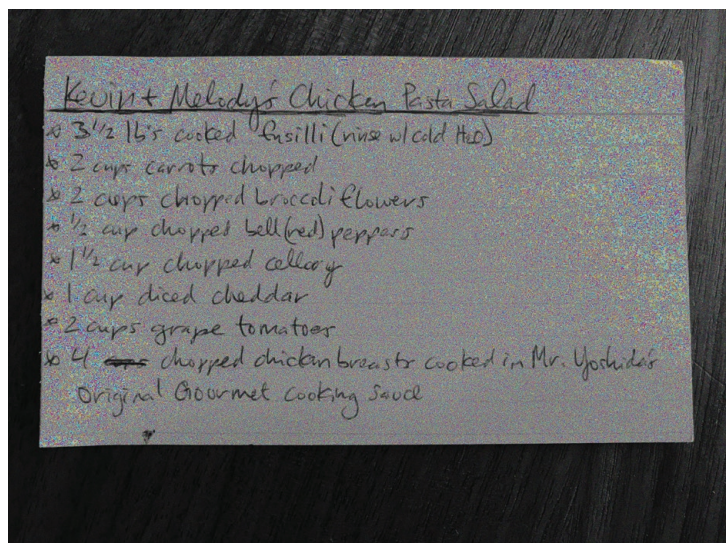 Kevin + Melody's Chicken Pasta Salad
* 3 1/2 lb's cooked fusilli (rinse w/ cold H2O)
* 2 cups carrots chopped
* 2 cups chopped broccoli flowers
* 1/2 cup chopped bell (red) peppers
* 1 1/2 cup chopped cellery
* 1 cup diced cheddar
* 2 cups grape tomatoes
* 4 chopped chicken breasts cooked in Mr. Yoshida's
original Gourmet cooking sauce